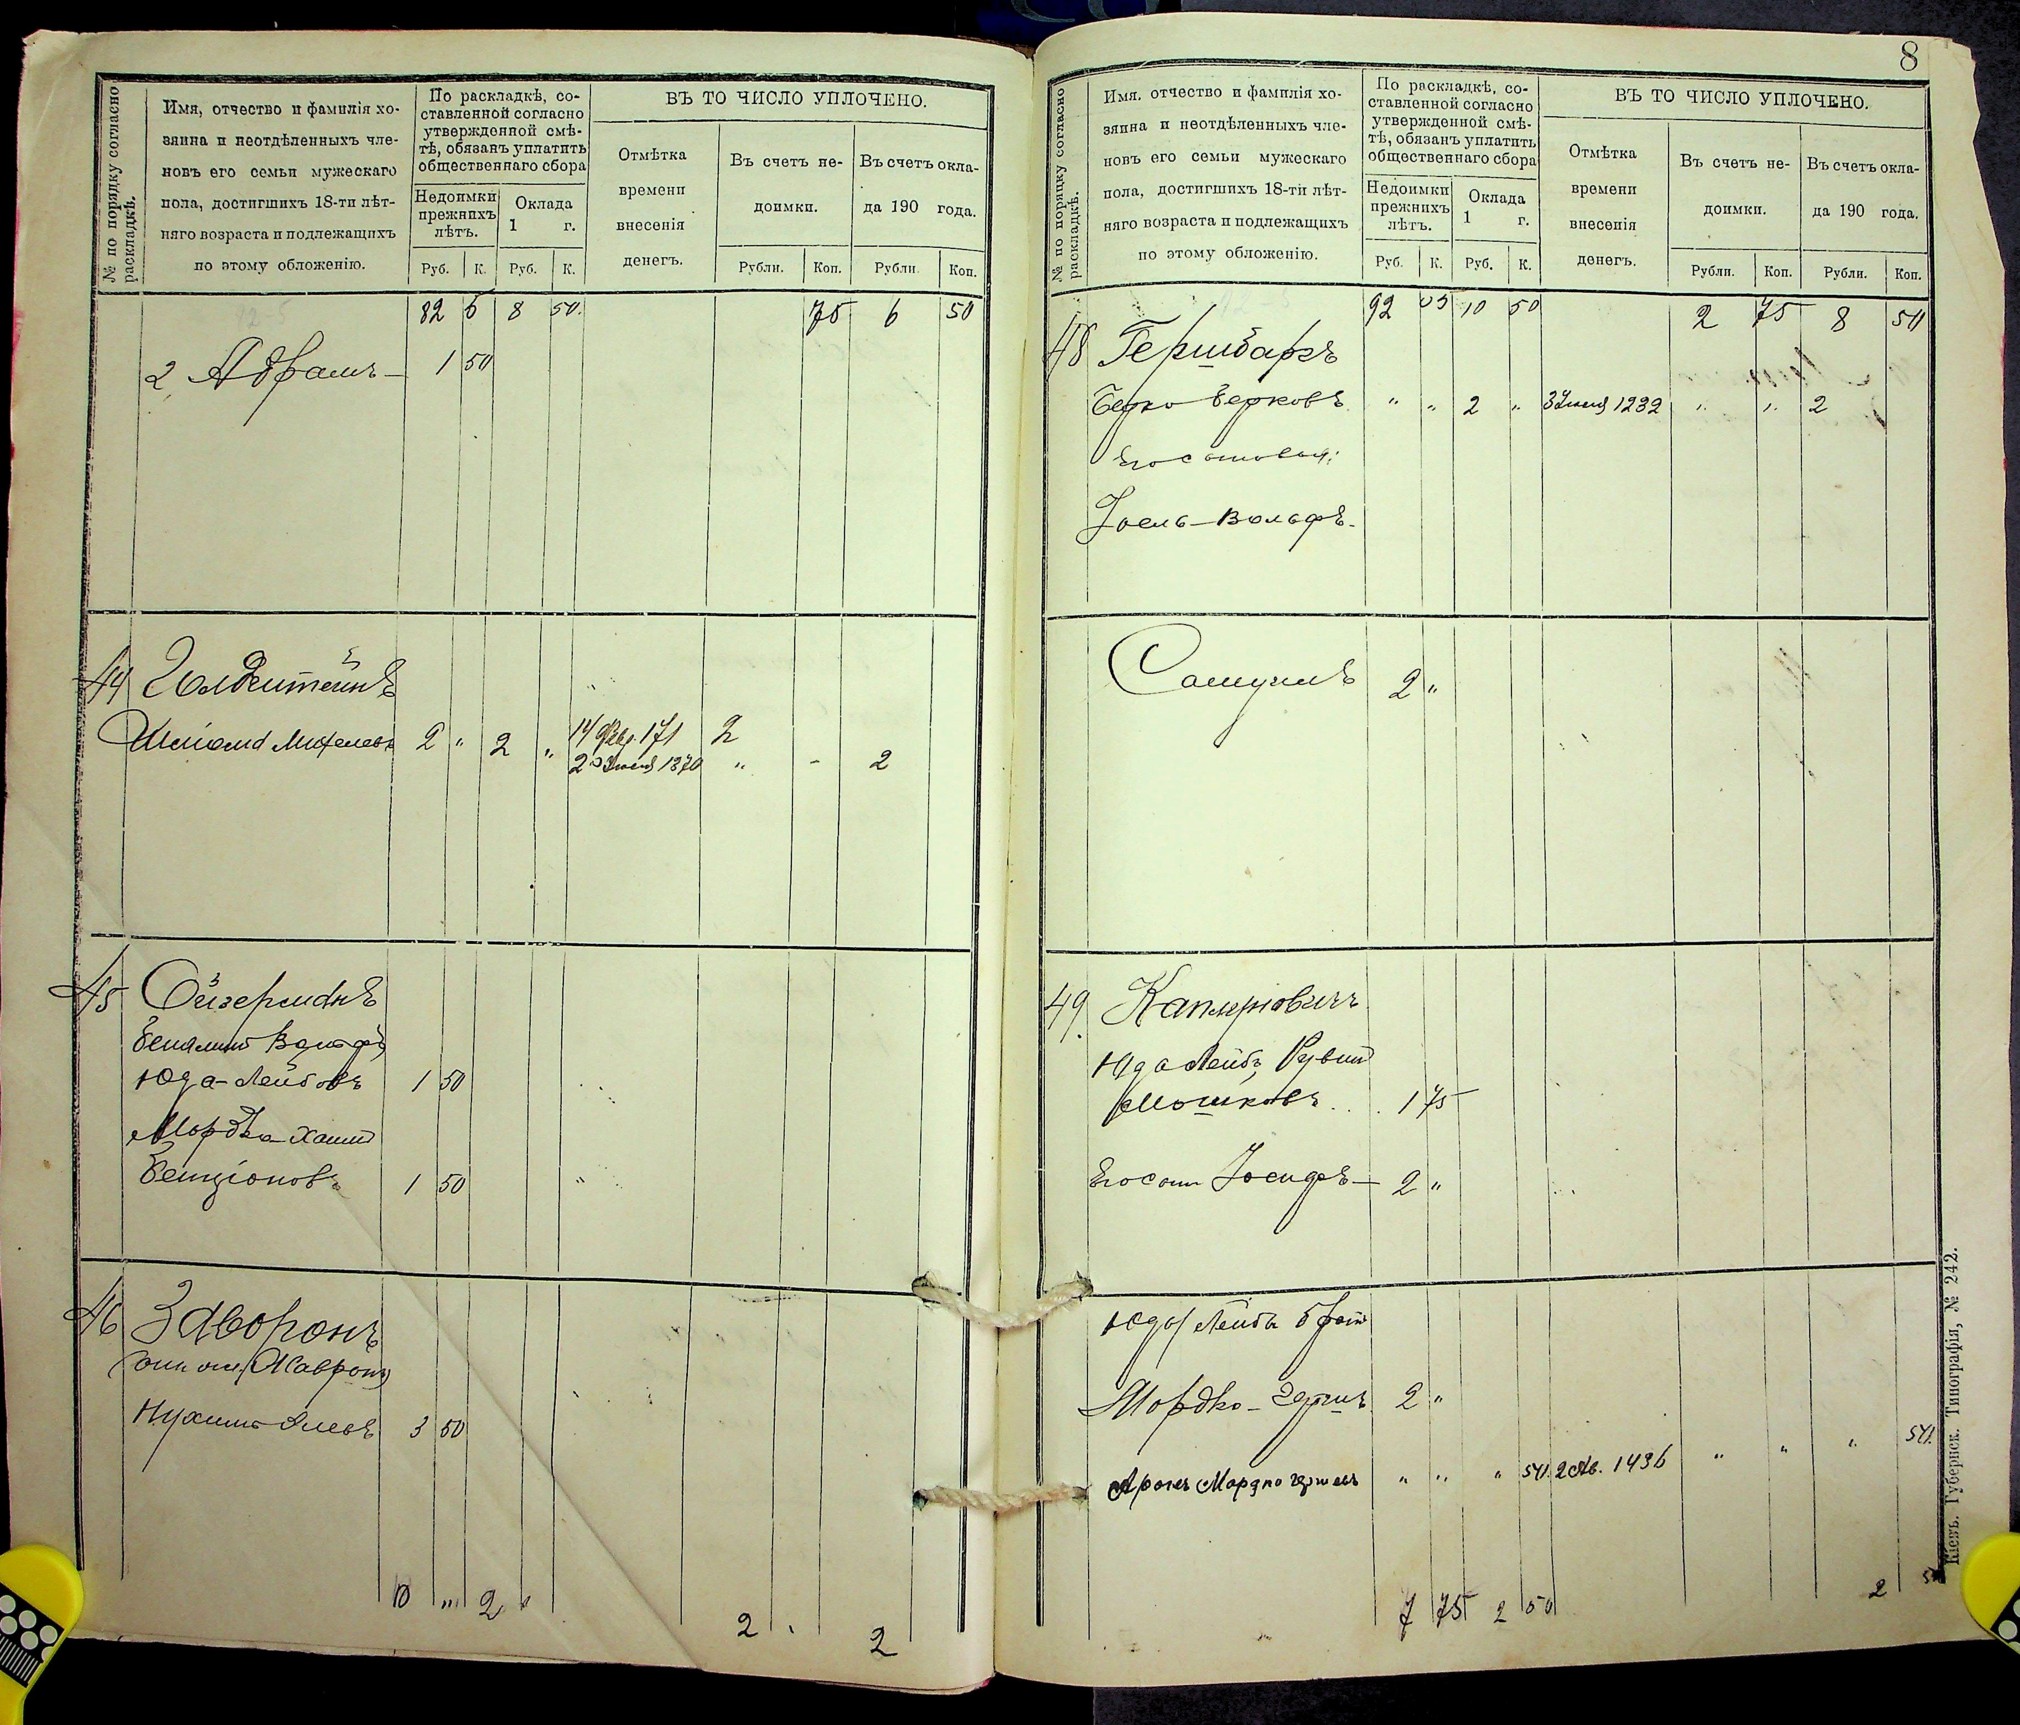 № по порядку согласно раскладкѣ.
Имя, отчество и фамилія хо-
зяина и неотдѣленныхъ чле-
новъ его семьи мужескаго
пола, достигшихъ 18-ти лѣт-
няго возраста и подлежащихъ
по этому обложенію.
По раскладкѣ, со-
ставленной согласно
утвержденной смѣ-
тѣ, обязанъ уплатить
общественнаго сбора
Недоимки
прежнихъ
лѣтъ.
Оклада
1 г.
Руб. К. Руб. К.
ВЪ ТО ЧИСЛО УПЛОЧЕНО.
Отмѣтка
времени
внесенія
денегъ.
Въ счетъ не-
доимки.
Въ счетъ окла-
да 190 года.
Рубли. Коп. Рубли. Коп.
82 5 8 50. 75 6 50
2 Абрамъ— 1 50
44 Голдштейнъ
Михелевъ 2 " 2 " 14 Февр. 171 2
2 Іюня 1370 " - 2
45 Ойгерманъ
Веніаминъ Вольфъ
Юда-Лейбовъ 1 50
Мордко-Хаимъ
Бенціоновъ 1 50 "
46 Задворонъ
Нухимъ 3 50
10 " 2 " 2 . 2
8
№ по порядку согласно раскладкѣ.
Имя, отчество и фамилія хо-
зяина и неотдѣленныхъ чле-
новъ его семьи мужескаго
пола, достигшихъ 18-ти лѣт-
няго возраста и подлежащихъ
по этому обложенію.
По раскладкѣ, со-
ставленной согласно
утвержденной смѣ-
тѣ, обязанъ уплатить
общественнаго сбора
Недоимки
прежнихъ
лѣтъ.
Оклада
1 г.
Руб. К. Руб. К.
ВЪ ТО ЧИСЛО УПЛОЧЕНО.
Отмѣтка
времени
внесенія
денегъ.
Въ счетъ не-
доимки.
Въ счетъ окла-
да 190 года.
Рубли. Коп. Рубли. Коп.
92 05 10 50 2 75 8 50
48 Гершбаргъ
Берко Берковъ " " 2 " 3 Іюня 1232 " " 2
Его сыновья:
Іоель-Вольфъ.
Самуилъ 2 "
49. Каплуновичъ
Юда Лейбъ, Рувинъ
Мошковъ . . . 1 75
Его сынъ Іосифъ— 2 "
Юды Лейбы братъ
Мордко-Гершъ 2 "
Аронъ Мордко Гершевъ " " " 50. 2 Ав. 1436 " " " 50.
7 75 2 50 2 50
Кіевъ. Губернск. Типографія, № 242.